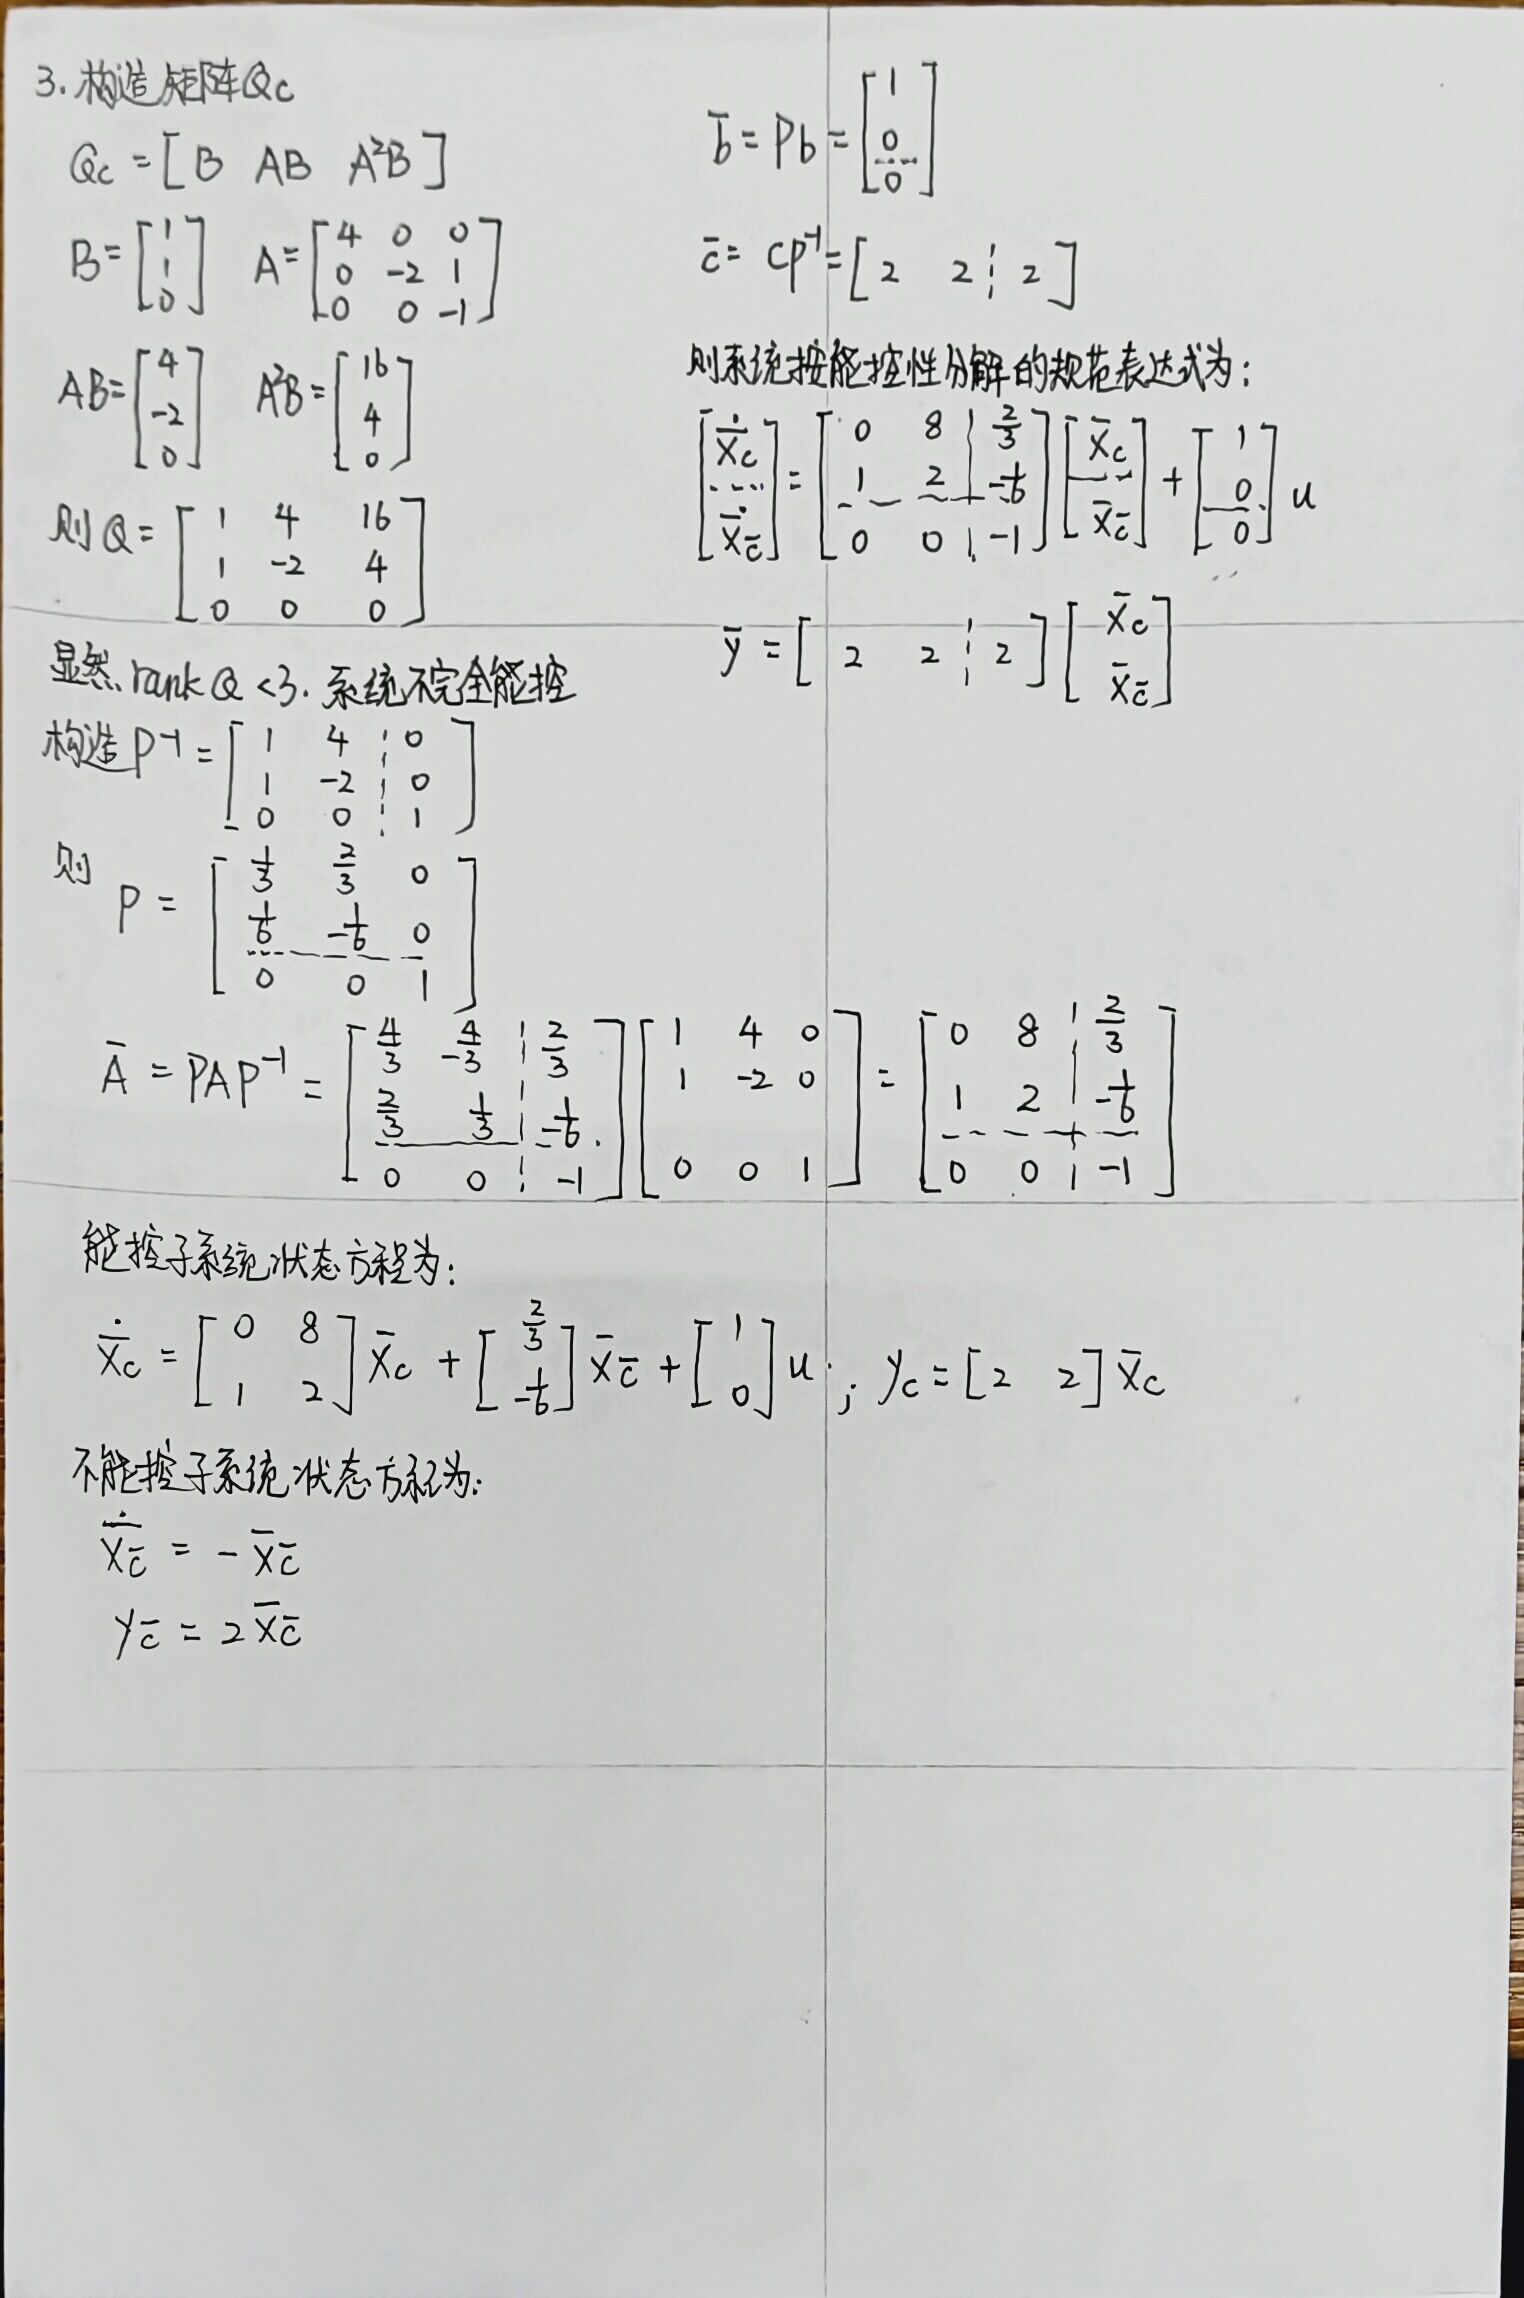 3. 构造矩阵Qc
Qc = [B AB A²B]
B = [1; 1; 0] A = [4 0 0; 0 -2 1; 0 0 -1]
AB = [4; -2; 0] A²B = [16; 4; 0]
则Q = [1 4 16; 1 -2 4; 0 0 0]
显然, rank Q < 3. 系统不完全能控
构造 P⁻¹ = [1 4 ¦ 0; 1 -2 ¦ 0; 0 0 ¦ 1]
则 P = [1/3 2/3 0; 1/6 -1/6 0; 0 0 1]
Ā = PAP⁻¹ = [4/3 -4/3 ¦ 2/3; 2/3 1/3 ¦ -1/6; 0 0 ¦ -1] [1 4 0; 1 -2 0; 0 0 1] = [0 8 ¦ 2/3; 1 2 ¦ -1/6; 0 0 ¦ -1]
b̄ = Pb = [1; 0; 0]
c̄ = CP⁻¹ = [2 2 ¦ 2]
则系统按能控性分解的规范表达式为:
[ẋ̄c; ẋ̄c̄] = [0 8 ¦ 2/3; 1 2 ¦ -1/6; 0 0 ¦ -1] [x̄c; x̄c̄] + [1; 0; 0] u
ȳ = [2 2 ¦ 2] [x̄c; x̄c̄]
能控子系统状态方程为:
ẋ̄c = [0 8; 1 2] x̄c + [2/3; -1/6] x̄c̄ + [1; 0] u ; yc = [2 2] x̄c
不能控子系统状态方程为:
ẋ̄c̄ = - x̄c̄
yc̄ = 2 x̄c̄